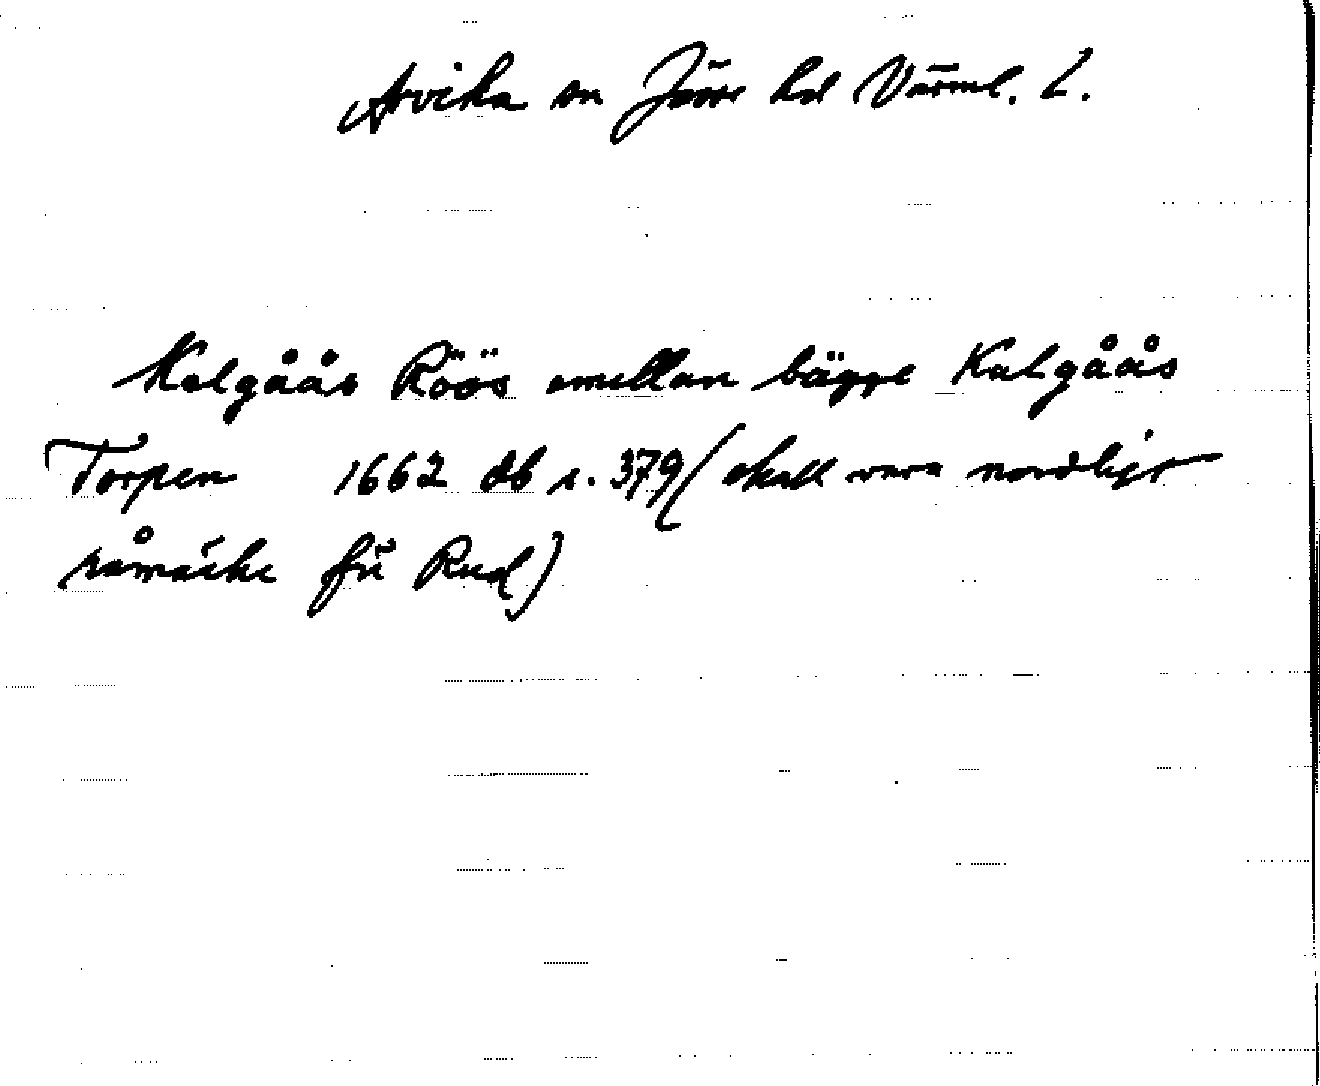 Arvika sn Jösse hd Värml. L.
Kalgåås Röös emellan bägge Kalgåås
Torpen 1662 db s. 379 (skall vara nordligt
råmärke för Rud)